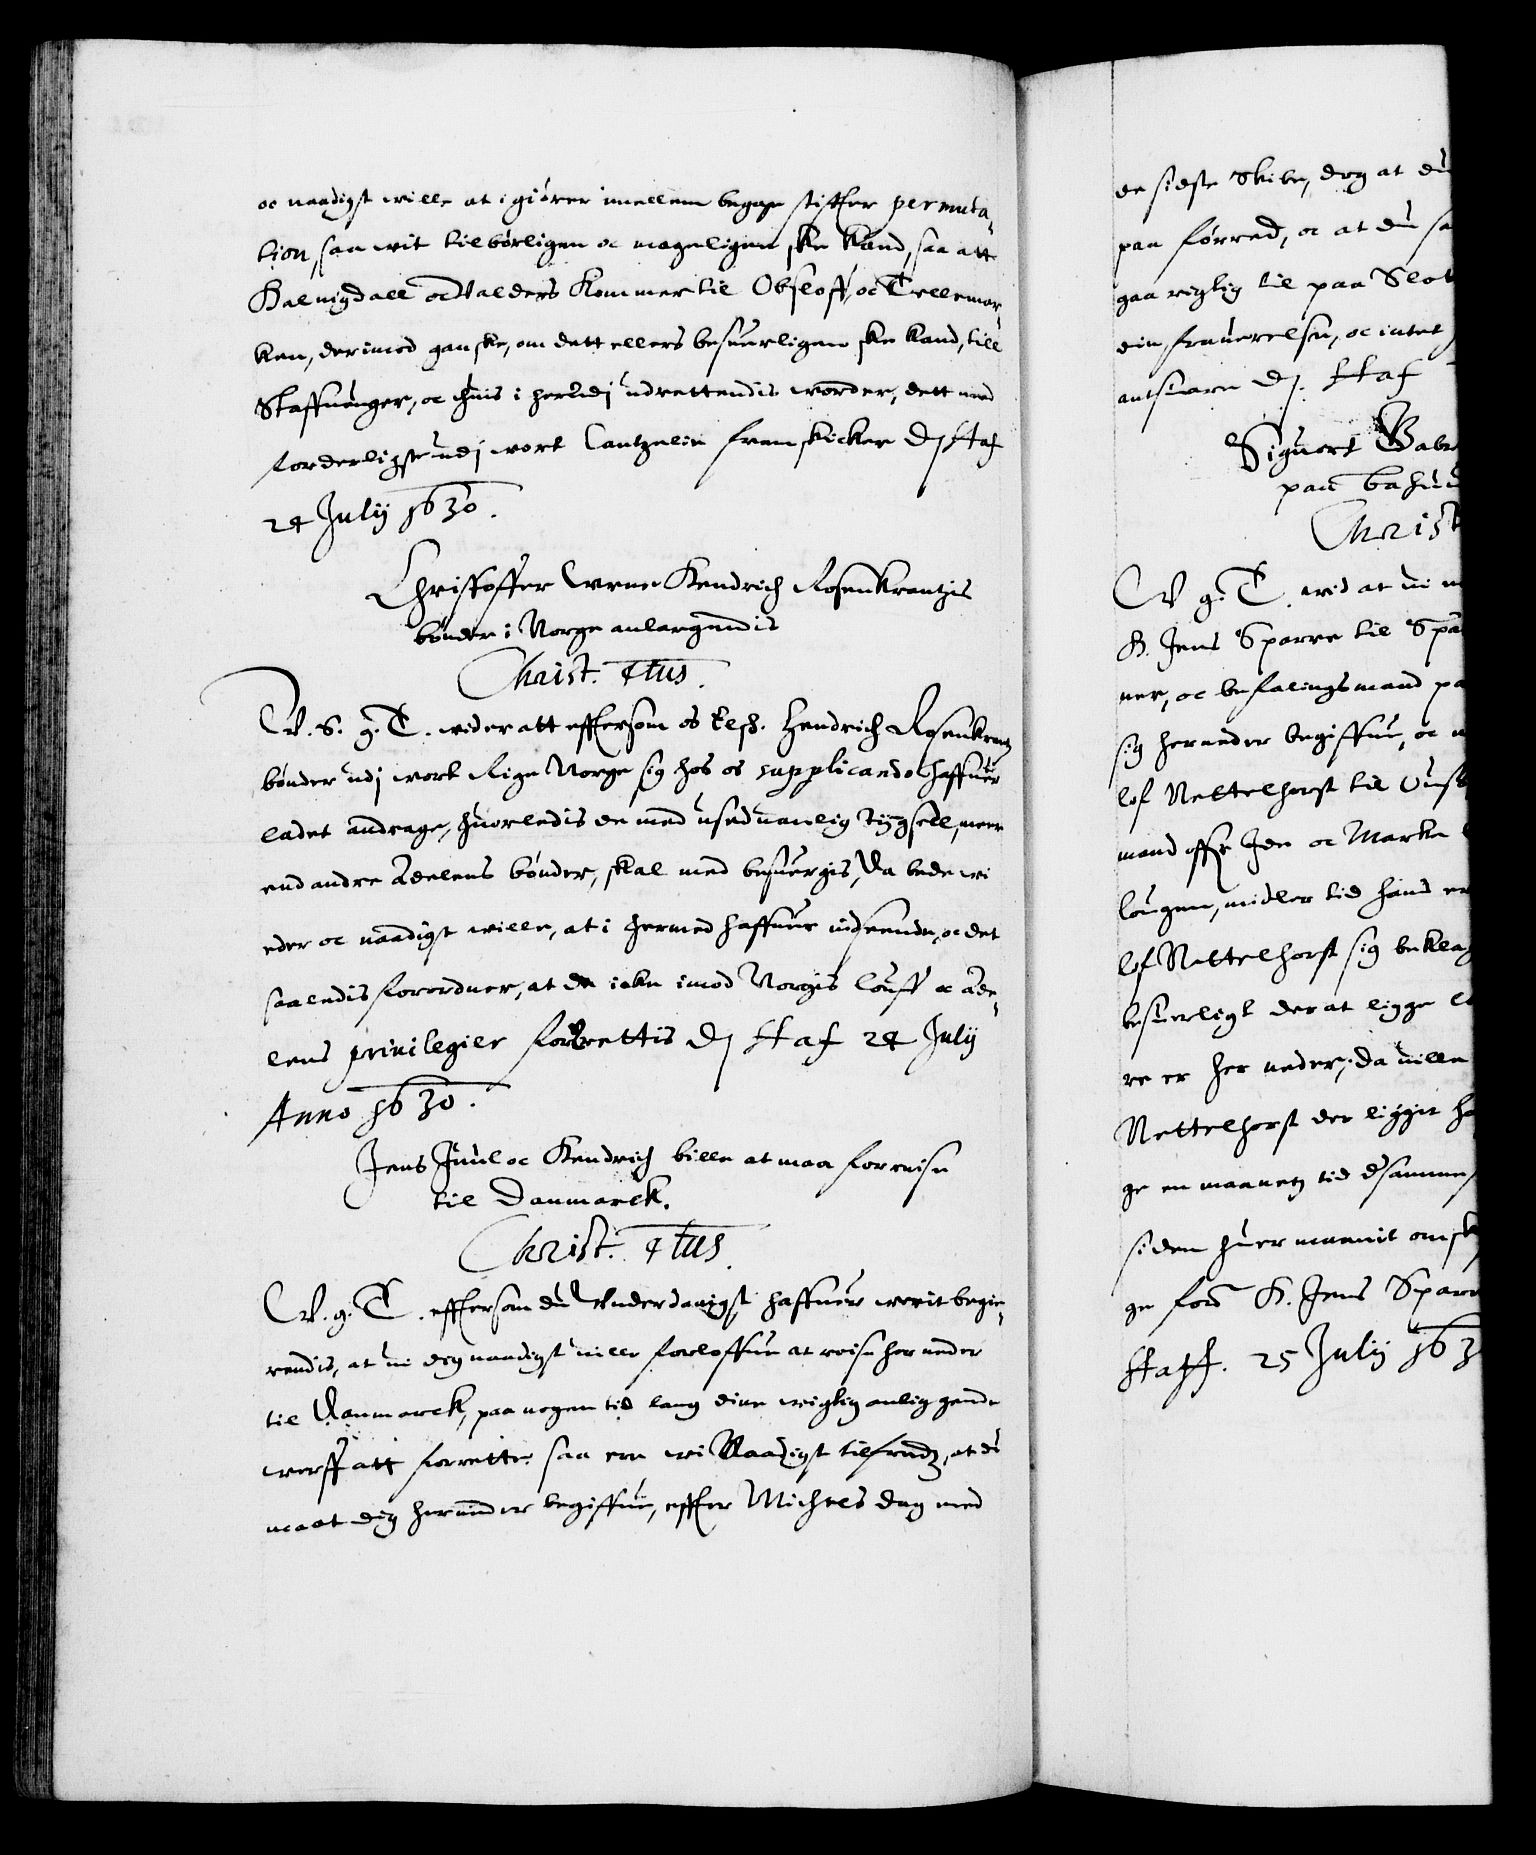 oc naadigst wille at i giører imellem begge stiffter permuta-
tion, saa wit tilbørligen oc mageligen ske kand, saa att
Halnigdall oc Walders kommer til Obsloff, oc Tellemar-
ken, derimod ganske, om dett ellers besuerligen ske kand, till
Staffuanger, oc huis i herudj udrettendis worder, dett med
forderligste udj wort Cantzelie fremskicker Dj Haf
24 Julij 1630.
Christoffer Vrne Hendrich Rosenkrantzis
bønder i Norge anlangendis
Christ. 4tus.
W. S. g. T. wider att effterson os Elsk. Hendrich Rosenkrantz
bønder udj wort Rige Norge sig hos os supplicando haffuer
ladet andrage, huorledis de med usæduanlig tijngsell, meer
end andre Adelens bønder, skal med besuergis, Da bede wi
eder oc naadigst wille, at i hermed haffuer indseende, oc det
saaledis forordner, at de icke imod Norgis Louff oc Ade-
lens privilegier forvrettis Dj Haf 24 Julij
Anno 1630.
Jens Juul oc Hendrich bille at maa forreise
til Danmarck.
Christ. 4tus.
W. g. T. effterson du Vnderdanigst haffuer werit begie-
rendis, at wi dig naadigst wille forloffue at reise her neder
til Danmarck, paa nogen tid lang dine wigtig anliggende
werff att forrette, saa ere wi Naadigst tilfredz, at du
maat dig herneder begiffue, effter Michels dag med
de sidste Skibe, dog at du
paa forrad, oc at du sa
gaar rigtig til paa Slot
din frauerelse, oc intet
antsuare Dj. Haf
Siguort Gabr
paa bahuu
Christ
W g. T. wid at wi
H. Jens Sparre til Spa
ner, oc befalingsmand pa
sig herneder begiffue, oc
lof Nettelhorst til
mand offr Jde oc Marke
lougen, midler tid hand er
lof Nettelhorst sig beklag
besuerligt der at ligge
re er her neder, da wille
Nettelhorst der liggit ha
ge en maanetz tid
siden huer maanit omsk
ge for H. Jens Sparr
Haff. 25 Julij 163